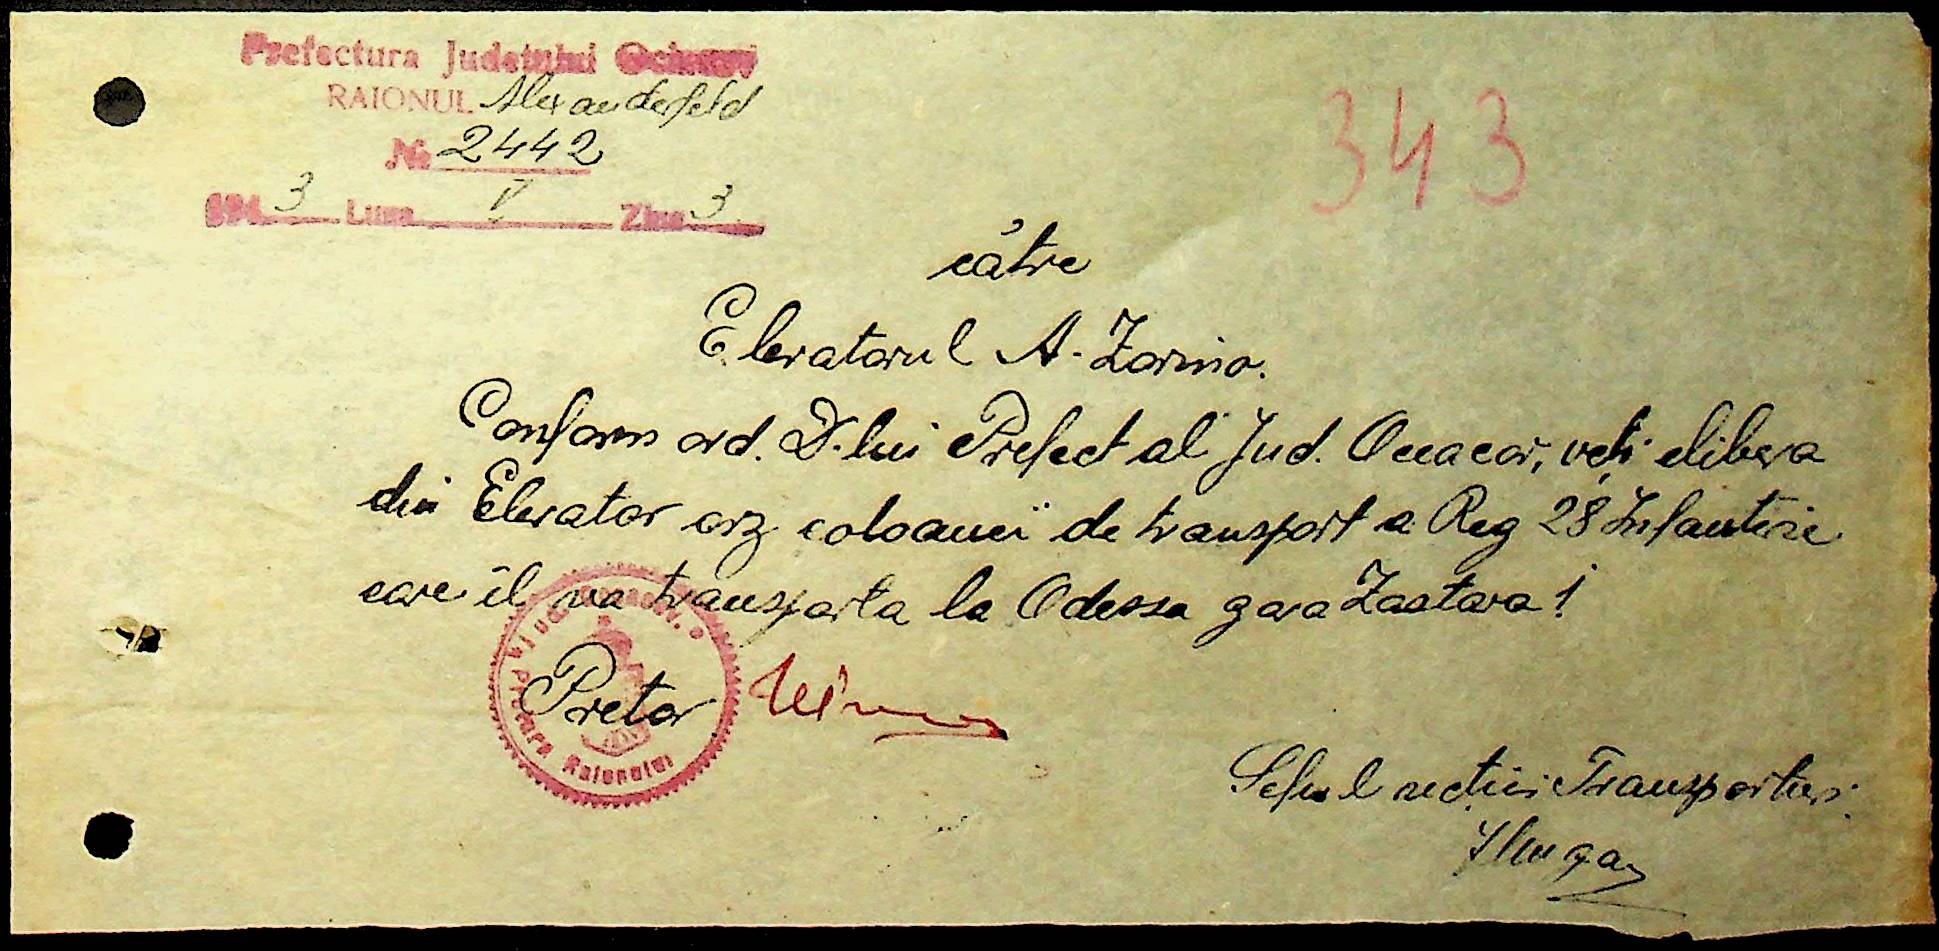 Prefectura Judetului Oceacov
RAIONUL Alexanderfeld
№ 2442
194 3 Luna V Ziua 3
343
către
Elevatorul A. Zorino.
Conform ord. D-lui Prefect al Jud. Oceacov, veți elibera
din Elevator orz coloanei de transport a Reg 28 Infanterie
care îl va transporta la Odessa gara Zastava!
Pretor
Pretura Raionului
Șeful secției Transporturi